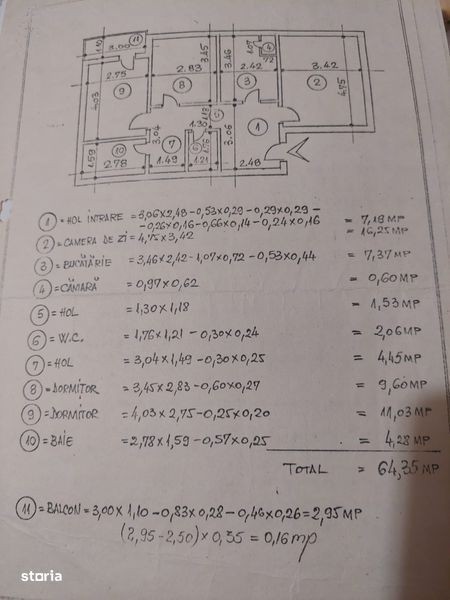 11
1.10
3.00
2.75
2.83
3.45
3.46
1.07
4
.72
2.42
3.42
4.03
9
8
3
2
4.75
1.18
5
3.04
1.30
3.06
1
1.59
10
2.78
7
1.49
6
1.76
1.21
2.48
1 = HOL INTRARE = 3,06×2,48-0,53×0,29-0,29×0,29-
-0,26×0,16-0,66×0,14-0,24×0,16 = 7,18 MP
2 = CAMERA DE ZI = 4,75×3,42 = 16,25 MP
3 = BUCĂTĂRIE = 3,46×2,42-1,07×0,72-0,53×0,44 = 7,37 MP
4 = CĂMARĂ = 0,97×0,62 = 0,60 MP
5 = HOL = 1,30×1,18 = 1,53 MP
6 = W.C. = 1,76×1,21 - 0,30×0,24 = 2,06 MP
7 = HOL = 3,04×1,49-0,30×0,25 = 4,45 MP
8 = DORMITOR = 3,45×2,83-0,60×0,27 = 9,60 MP
9 = DORMITOR = 4,03×2,75-0,25×0,20 = 11,03 MP
10 = BAIE = 2,78×1,59-0,57×0,25 = 4,28 MP
TOTAL = 64,35 MP
11 = BALCON = 3,00×1,10-0,83×0,28-0,46×0,26 = 2,95 MP
(2,95-2,50)×0,35 = 0,16 mp
storia